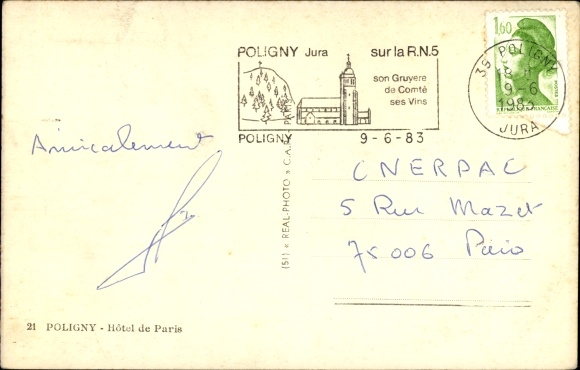 POLIGNY Jura sur la R.N.5
son Gruyere
de Comté
ses Vins
POLIGNY 9-6-83
1,60
39 POLIGNY
18 H
9-6
1983
JURA
Amicalement
CNERPAC
5 Rue Mazet
75006 Paris
(51) « REAL-PHOTO » C.A.P. PARIS
21 POLIGNY - Hôtel de Paris